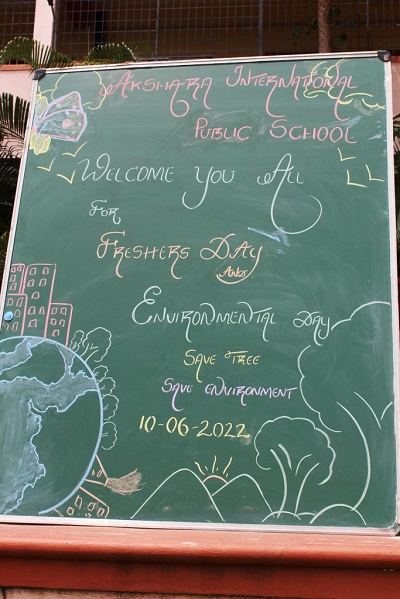 Akshara International
Public School
Welcome you All
For
Freshers Day
And
Environmental Day
Save Tree
Save environment
10-06-2022